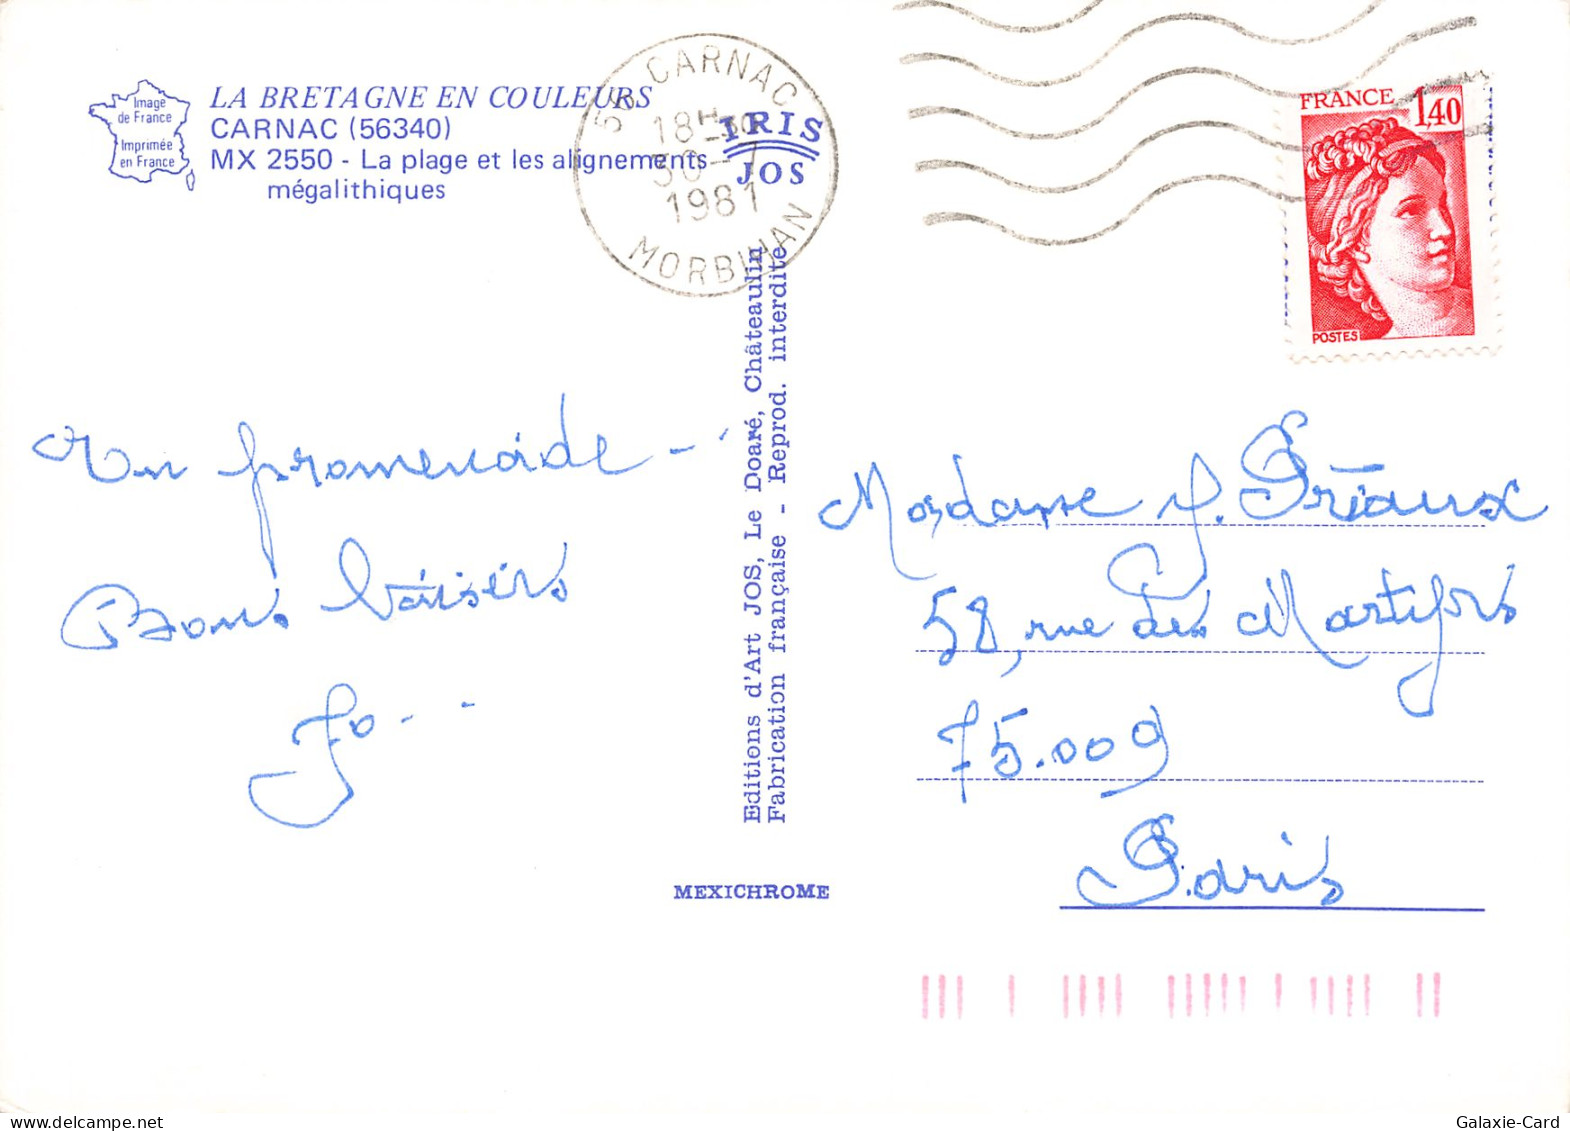 Image
de France
Imprimée
en France
LA BRETAGNE EN COULEURS
CARNAC (56340)
MX 2550 - La plage et les alignements
mégalithiques
56 CARNAC
18H30
30 - 7
1981
MORBIHAN
IRIS
JOS
FRANCE
1,40
POSTES
promenade - -
Bons baisers
Jo - -
Editions d'Art JOS, Le Doaré, Châteaulin
Fabrication française - Reprod. interdite
MEXICHROME
Madame J. Préaux
58, rue des Martyrs
75.009
Paris
delcampe.net
Galaxie-Card